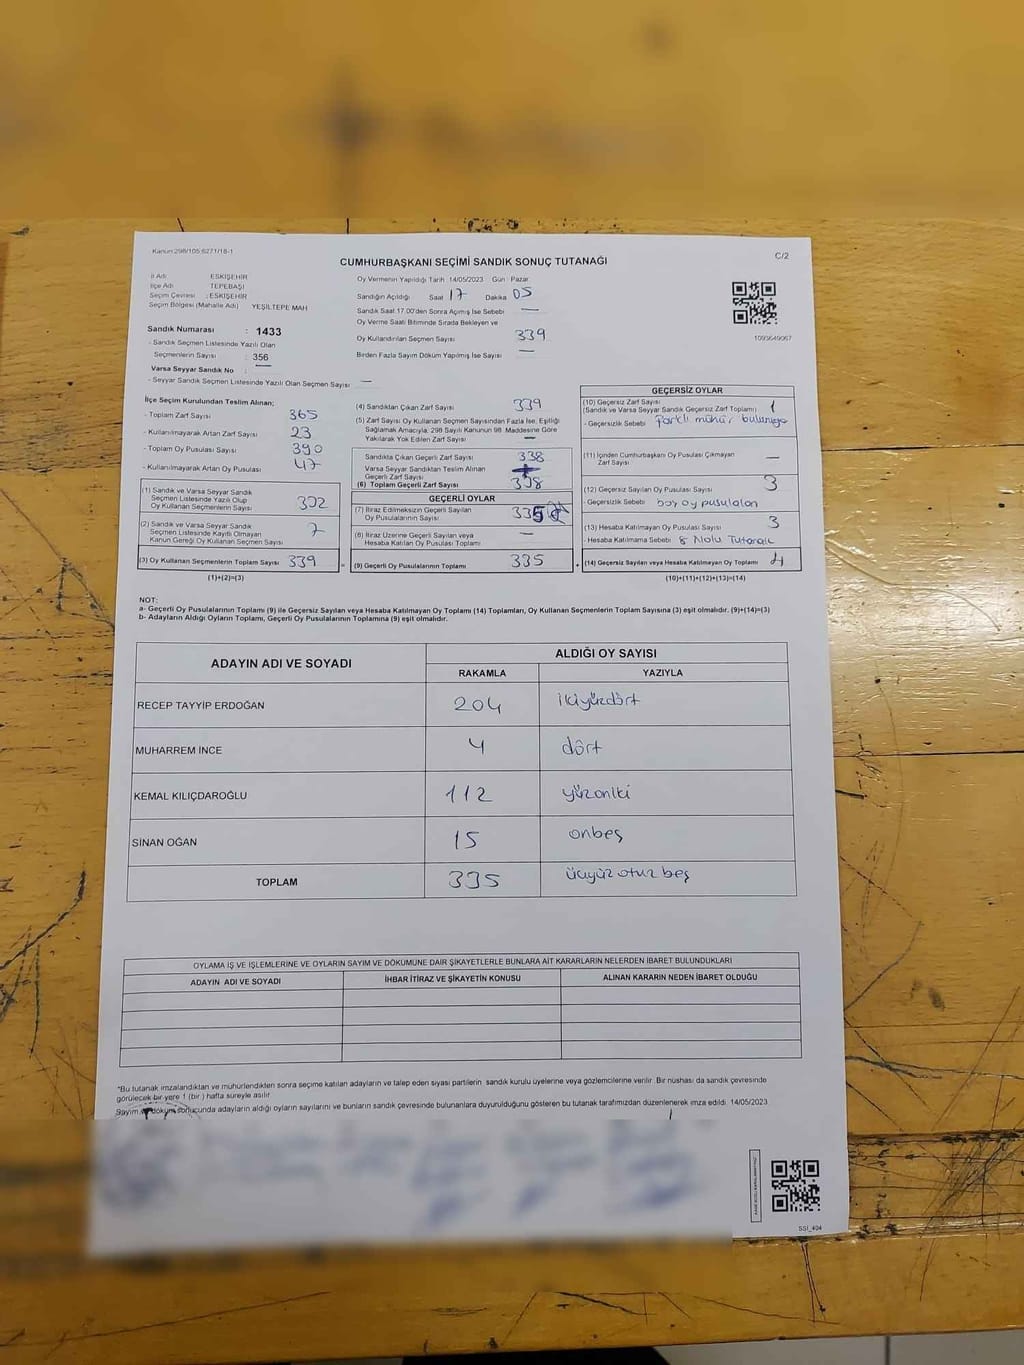 Kanun:298/105;6271/18-1
C/2
CUMHURBAŞKANI SEÇİMİ SANDIK SONUÇ TUTANAĞI
İl Adı ESKİŞEHİR
İlçe Adı TEPEBAŞI
Seçim Çevresi : ESKİŞEHİR
Seçim Bölgesi (Mahalle Adı) YEŞİLTEPE MAH
Sandık Numarası : 1433
- Sandık Seçmen Listesinde Yazılı Olan
Seçmenlerin Sayısı : 356
Varsa Seyyar Sandık No : —
- Seyyar Sandık Seçmen Listesinde Yazılı Olan Seçmen Sayısı : —
Oy Vermenin Yapıldığı Tarih 14/05/2023 Gün Pazar
Sandığın Açıldığı Saat 17 Dakika 05
Sandık Saat 17.00'den Sonra Açılmış İse Sebebi —
Oy Verme Saati Bitiminde Sırada Bekleyen ve
Oy Kullandırılan Seçmen Sayısı 339
Birden Fazla Sayım Döküm Yapılmış İse Sayısı —
1093649067
İlçe Seçim Kurulundan Teslim Alınan;
- Toplam Zarf Sayısı 365
- Kullanılmayarak Artan Zarf Sayısı 23
- Toplam Oy Pusulası Sayısı 390
- Kullanılmayarak Artan Oy Pusulası 47
(1) Sandık ve Varsa Seyyar Sandık
Seçmen Listesinde Yazılı Olup
Oy Kullanan Seçmenlerin Sayısı 332
(2) Sandık ve Varsa Seyyar Sandık
Seçmen Listesinde Kayıtlı Olmayan
Kanun Gereği Oy Kullanan Seçmen Sayısı 7
(3) Oy Kullanan Seçmenlerin Toplam Sayısı 339
(1)+(2)=(3)
(4) Sandıktan Çıkan Zarf Sayısı 339
(5) Zarf Sayısı Oy Kullanan Seçmen Sayısından Fazla İse, Eşitliği
Sağlamak Amacıyla, 298 Sayılı Kanunun 98. Maddesine Göre
Yakılarak Yok Edilen Zarf Sayısı —
Sandıkta Çıkan Geçerli Zarf Sayısı 338
Varsa Seyyar Sandıktan Teslim Alınan
Geçerli Zarf Sayısı
(6) Toplam Geçerli Zarf Sayısı 338
GEÇERLİ OYLAR
(7) İtiraz Edilmeksizin Geçerli Sayılan
Oy Pusulalarının Sayısı 335
(8) İtiraz Üzerine Geçerli Sayılan veya
Hesaba Katılan Oy Pusulası Toplamı —
= (9) Geçerli Oy Pusulalarının Toplamı 335
GEÇERSİZ OYLAR
(10) Geçersiz Zarf Sayısı
(Sandık ve Varsa Seyyar Sandık Geçersiz Zarf Toplamı) 1
- Geçersizlik Sebebi
(11) İçinden Cumhurbaşkanı Oy Pusulası Çıkmayan
Zarf Sayısı —
(12) Geçersiz Sayılan Oy Pusulası Sayısı 3
Geçersizlik Sebebi boş oy pusulaları
(13) Hesaba Katılmayan Oy Pusulası Sayısı 3
- Hesaba Katılmama Sebebi 8 Nolu Tutanak
+ (14) Geçersiz Sayılan veya Hesaba Katılmayan Oy Toplamı 4
(10)+(11)+(12)+(13)=(14)
NOT:
a- Geçerli Oy Pusulalarının Toplamı (9) ile Geçersiz Sayılan veya Hesaba Katılmayan Oy Toplamı (14) Toplamları, Oy Kullanan Seçmenlerin Toplam Sayısına (3) eşit olmalıdır. (9)+(14)=(3)
b- Adayların Aldığı Oyların Toplamı, Geçerli Oy Pusulalarının Toplamına (9) eşit olmalıdır.
ADAYIN ADI VE SOYADI ALDIĞI OY SAYISI
RAKAMLA YAZIYLA
RECEP TAYYİP ERDOĞAN 204 ikiyüzdört
MUHARREM İNCE 4 dört
KEMAL KILIÇDAROĞLU 112 yüzoniki
SİNAN OĞAN 15 onbeş
TOPLAM 335 üçyüz otuz beş
OYLAMA İŞ VE İŞLEMLERİNE VE OYLARIN SAYIM VE DÖKÜMÜNE DAİR ŞİKAYETLERLE BUNLARA AİT KARARLARIN NELERDEN İBARET BULUNDUKLARI
ADAYIN ADI VE SOYADI İHBAR İTİRAZ VE ŞİKAYETİN KONUSU ALINAN KARARIN NEDEN İBARET OLDUĞU
*Bu tutanak imzalandıktan ve mühürlendikten sonra seçime katılan adayların ve talep eden siyasi partilerin sandık kurulu üyelerine veya gözlemcilerine verilir. Bir nüshası da sandık çevresinde
görülecek bir yere 1 (bir) hafta süreyle asılır.
Sayım ve döküm sonucunda adayların aldığı oyların sayılarını ve bunların sandık çevresinde bulunanlara duyurulduğunu gösteren bu tutanak tarafımızdan düzenlenerek imza edildi. 14/05/2023
SSI_404